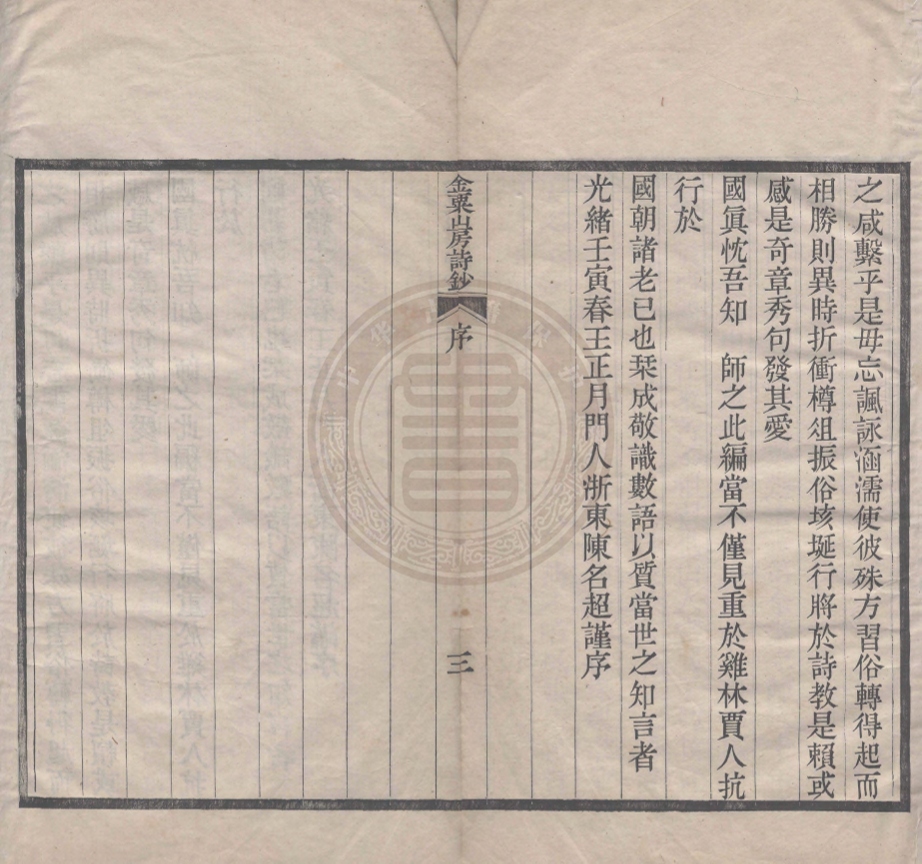 之咸繫乎是毋忘諷詠涵濡使彼殊方習俗轉得起而
相勝則異時折衝樽俎振俗垓埏行將於詩教是賴或
感是奇章秀句發其愛
國眞忱吾知　師之此編當不僅見重於雞林賈人抗
行於
國朝諸老已也栞成敬識數語以質當世之知言者
光緒壬寅春王正月門人浙東陳名超謹序
金粟山房詩鈔　序　三